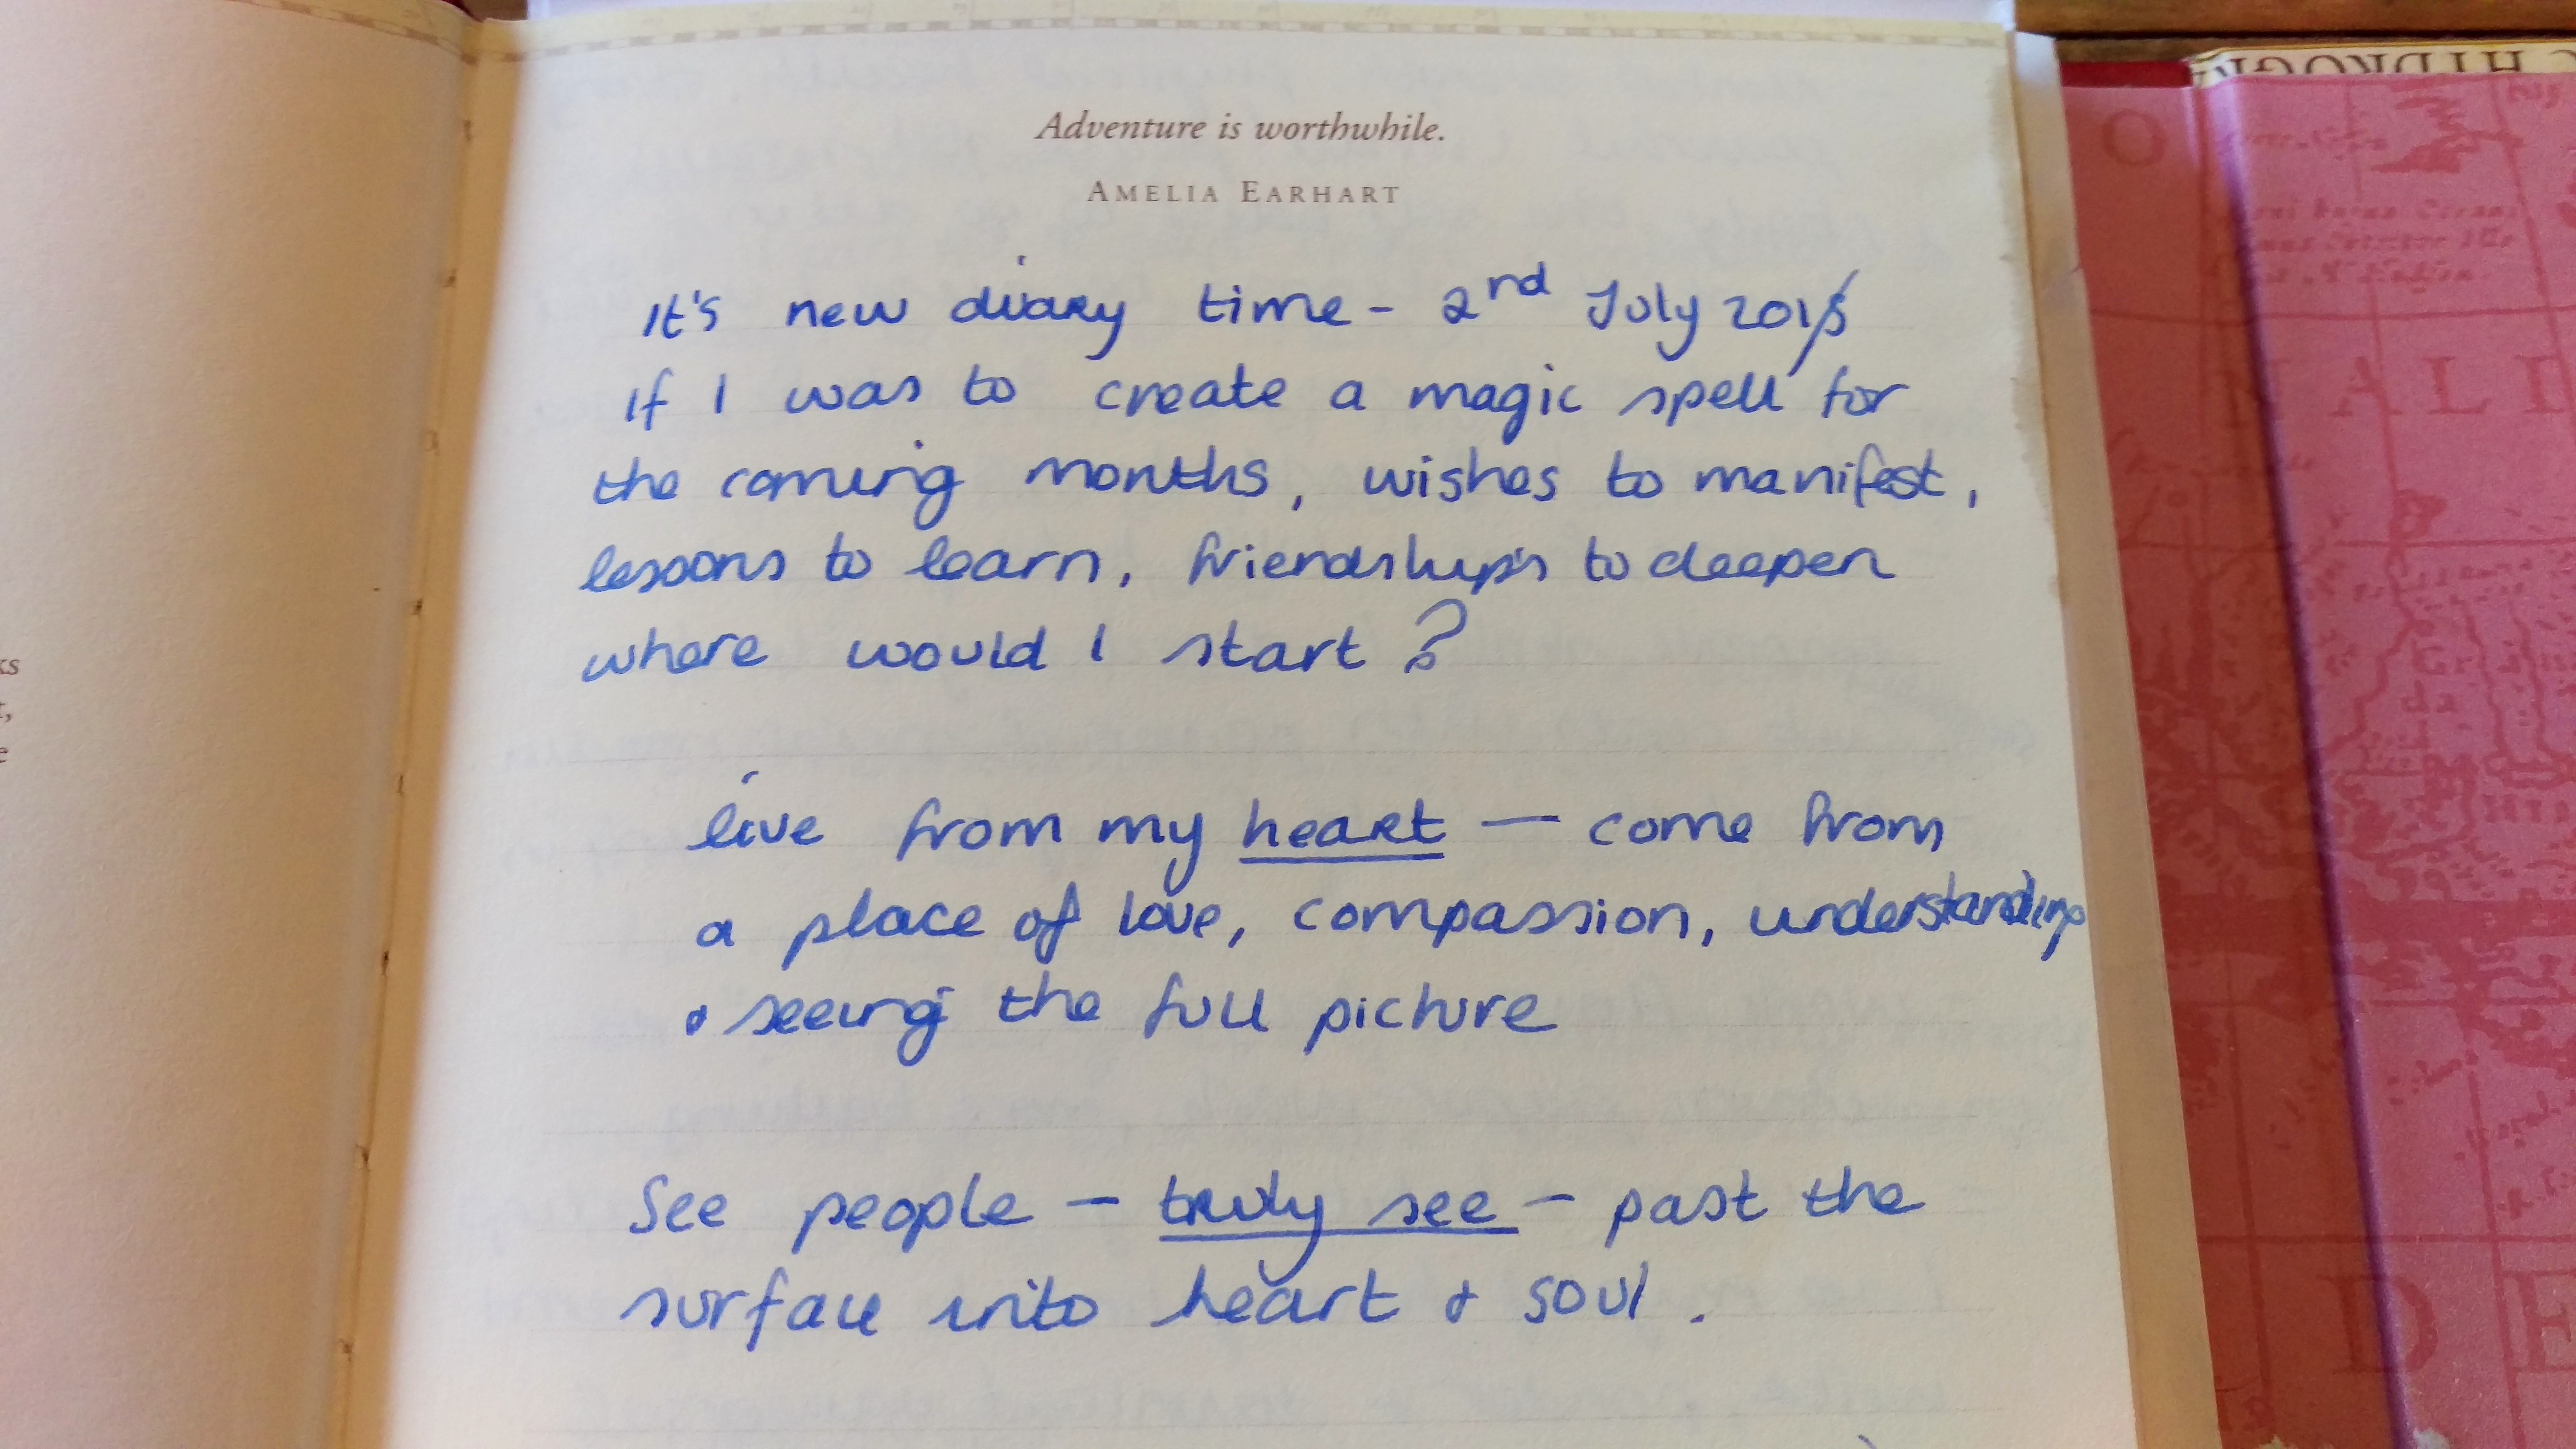 Adventure is worthwhile.
AMELIA EARHART
It's new diary time - 2nd July 2015
if I was to create a magic spell for
the coming months, wishes to manifest,
lessons to learn, friendships to deepen
where would I start?
live from my heart — come from
a place of love, compassion, understanding
& seeing the full picture
See people - truly see - past the
surface into heart & soul.